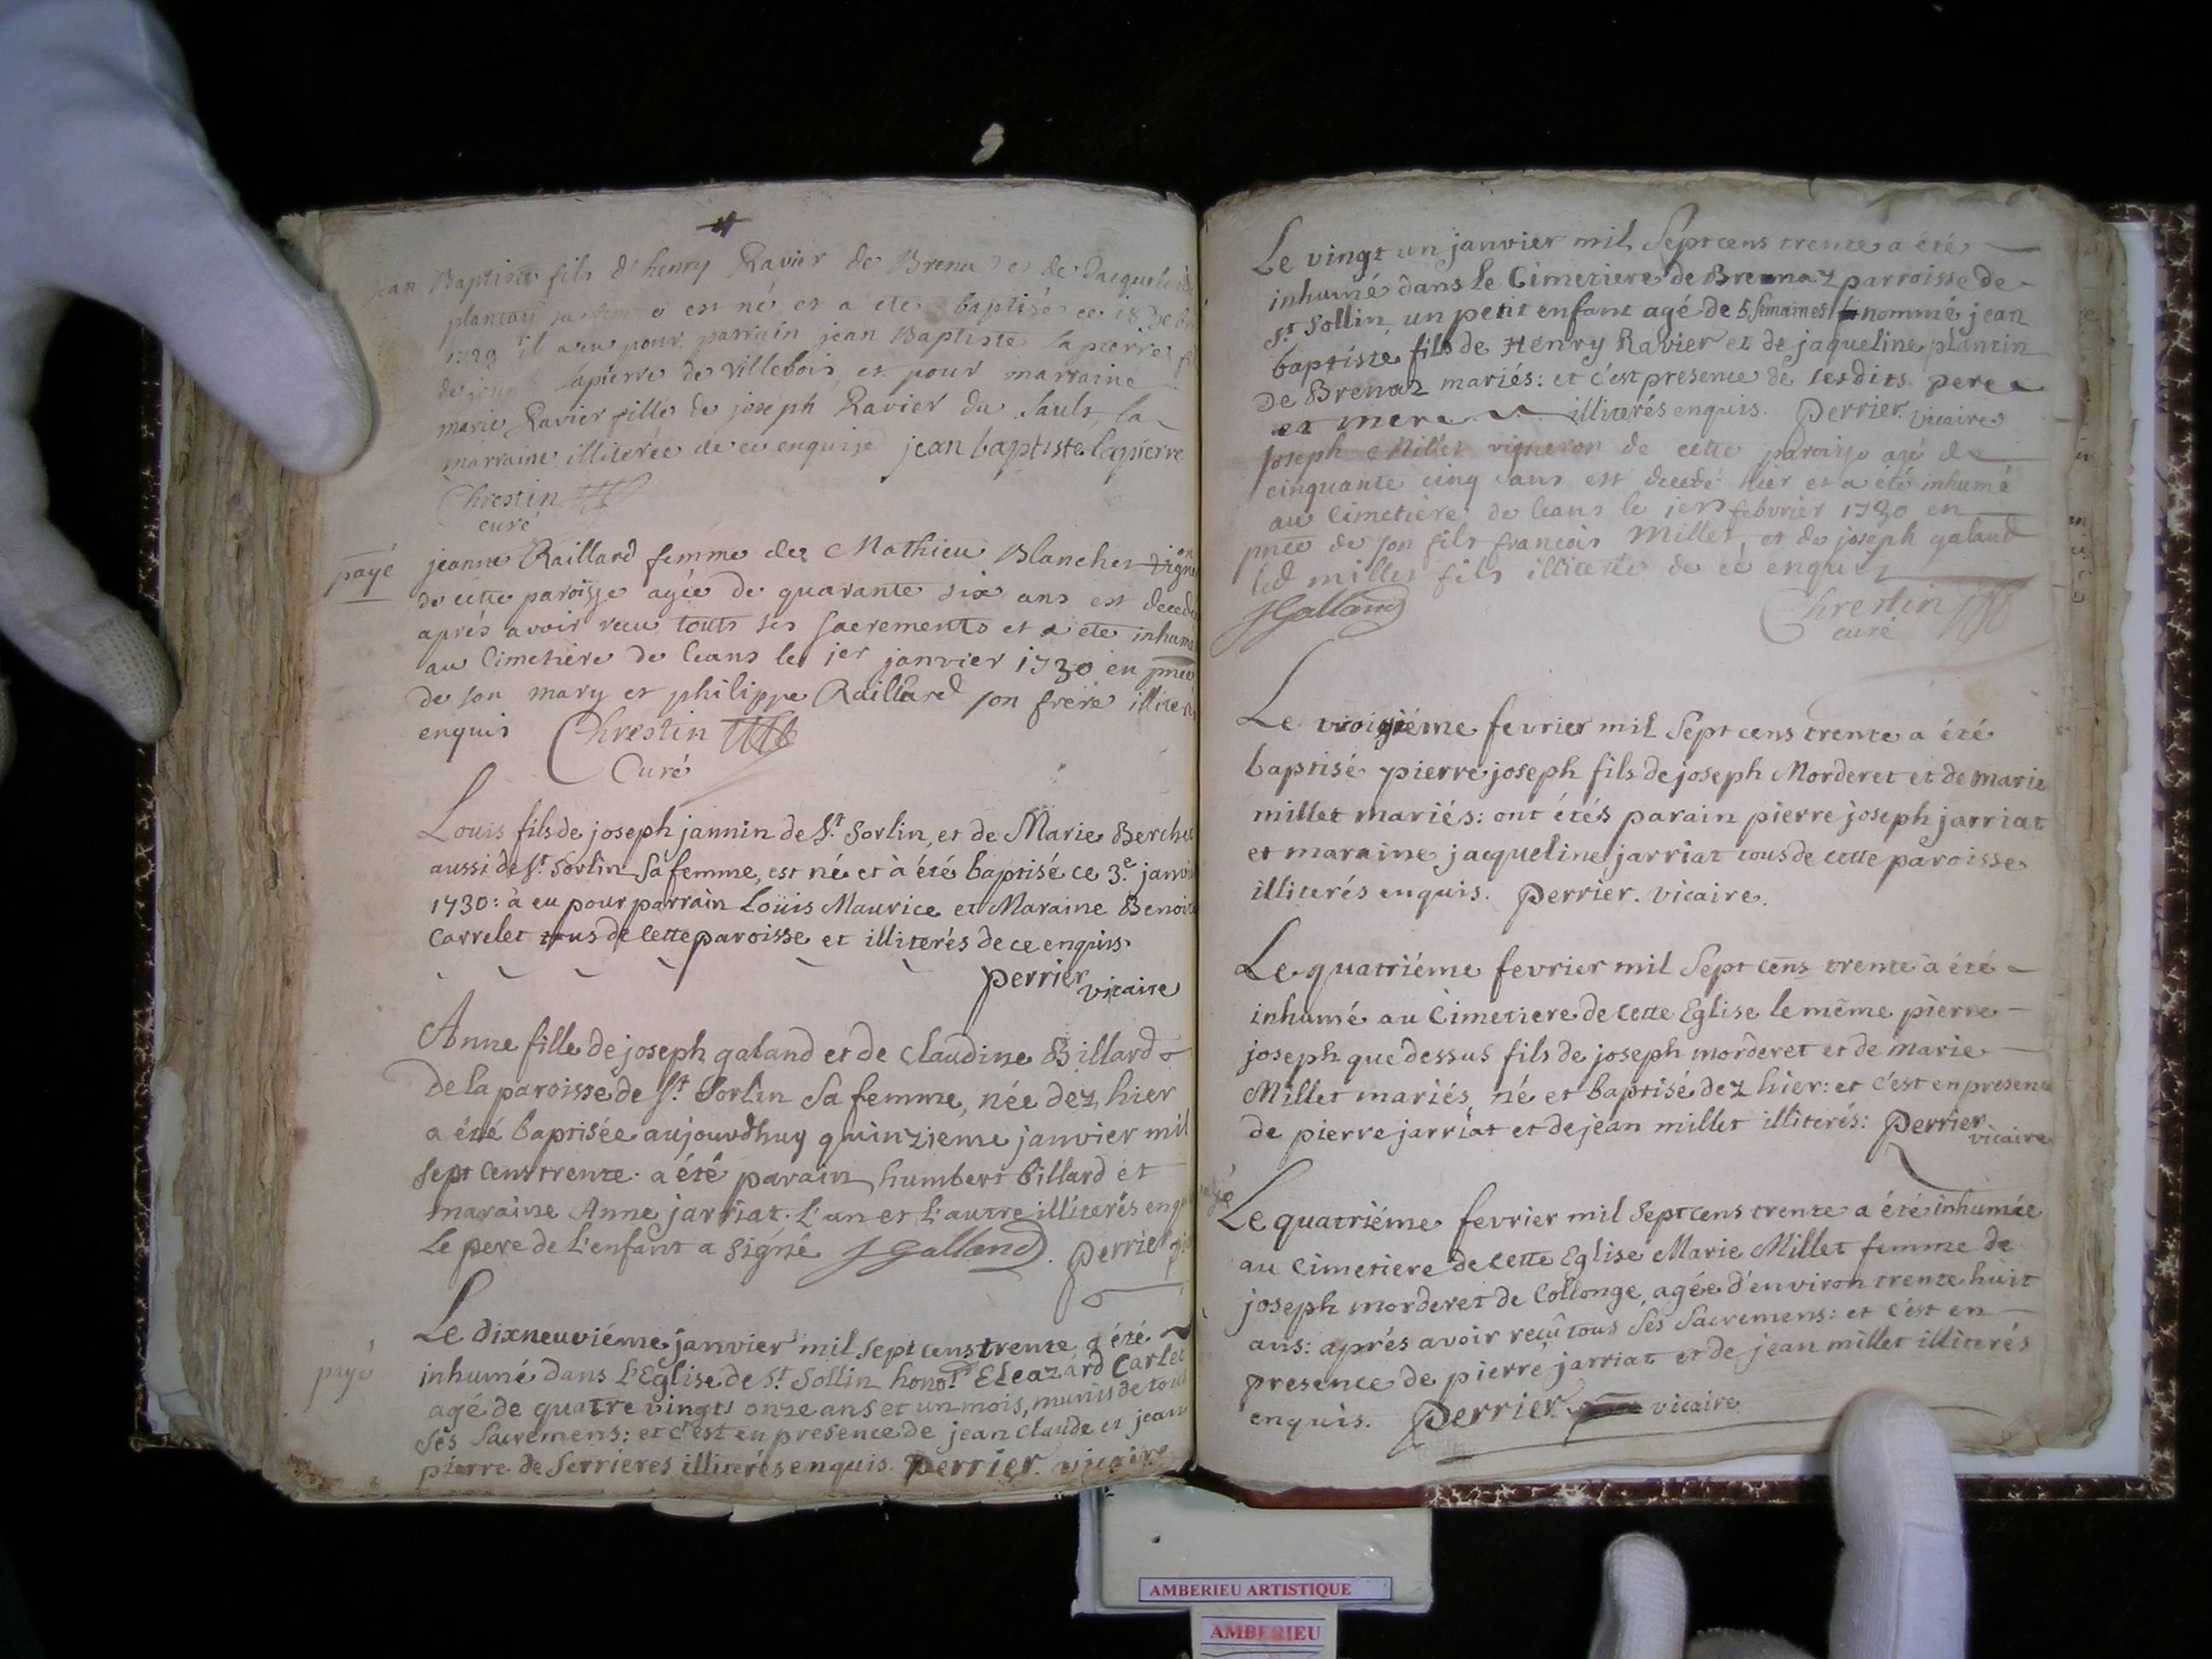 Jean Baptiste fils d'henry Ravier de Brena et de Jacqueline
plantay sa femme est né et a eté baptisé ce 18
1729 il a eu pour parrain jean Baptiste lapierre
lapierre de villebois et pour marraine
marie Ravier fille de joseph Ravier du Sault, la
marraine illiterée de ce enquise jean baptiste lapierre
Chrestin
curé
payé
jeanne Raillard femme de Mathieu Blanchet
de cette paroisse agée de quarante six ans est decedée
aprés avoir recu touts ses sacrements et a eté inhumé
au Cimetiére de ceans le jer janvier 1730 en pnce
de son mary et philippe Raillard son frere illiterés
enquis Chrestin
Curé
Louis fils de joseph jannin de St Sorlin, et de Marie Berchet
aussi de St Sorlin Sa femme, est né et à été baptisé ce 3e janvi
1730: à eu pour parrain Loüis Maurice et Maraine Benoite
Carrelet tous de cette paroisse et illiterés de ce enquis.
perrier vicaire
Anne fille de joseph galand et de Claudine Billard
de la paroisse de St Sorlin Sa femme, née dez hier
a été baptisée aujourdhuy quinzieme janvier mil
sept cens trente. a été parain humbert billard et
maraine Anne jarriat. L'un et L'autre illiterés enq
Le pere de L'enfant a signé JGalland. perrier
payé
Le dixneuviéme janvier mil sept cens trente a été
inhumé dans L'Eglise de St Sollin honot Eleazard Carlet
agé de quatre vingts onze ans et un mois, munis de tous
Sés Sacremens: et c'est en presence de jean claude et jean
pierre de Serrieres illiterés enquis. perrier. vicaire
Le vingt un janvier mil Septcens trente a été
inhumé dans le Cimetiere de Brenaz parroisse de
St Sollin un petit enfant agé de 5 Semaines nommé jean
baptiste fils de Henry Ravier et de jaqueline plantin
De Brenaz mariés: et c'est presence de sesdits pere
et mere illiterés enquis. perrier. vicaire
joseph Millet vigneron de cette paroisse agé de
cinquante cinq ans est decedé hier et a été inhumé
au Cimetiere de ceans le jer febvrier 1730 en
pnce de son fils francois Millet, et de joseph galand
led millet fils illiterée de ce enquis
JGalland Chrestin
curé
Le troisiéme fevrier mil Sept cens trente a été
baptisé pierre joseph fils de joseph Morderet et de marie
millet mariés: ont étés parain pierre joseph jarriat
et maraine jacqueline jarriat tous de cette paroisse
illiterés enquis. perrier. vicaire.
Le quatriéme fevrier mil Sept cens trente a été
inhumé au Cimetiere de cette Eglise le même pierre
joseph que dessus fils de joseph morderet et de marie
Millet mariés, né et baptisé dez hier: et c'est en presence
de pierre jarriat et de jean millet illiterés: perrier
vicaire
Le quatriéme fevrier mil Septcens trente a été inhumée
au Cimetiere de cette Eglise Marie Millet femme de
joseph morderet de Collonge, agée d'environ trente huit
ans: aprés avoir reçû tous Sés Sacremens: et c'est en
presence de pierre jarriat et de jean millet illiterés
enquis. perrier vicaire
AMBERIEU ARTISTIQUE
AMBERIEU